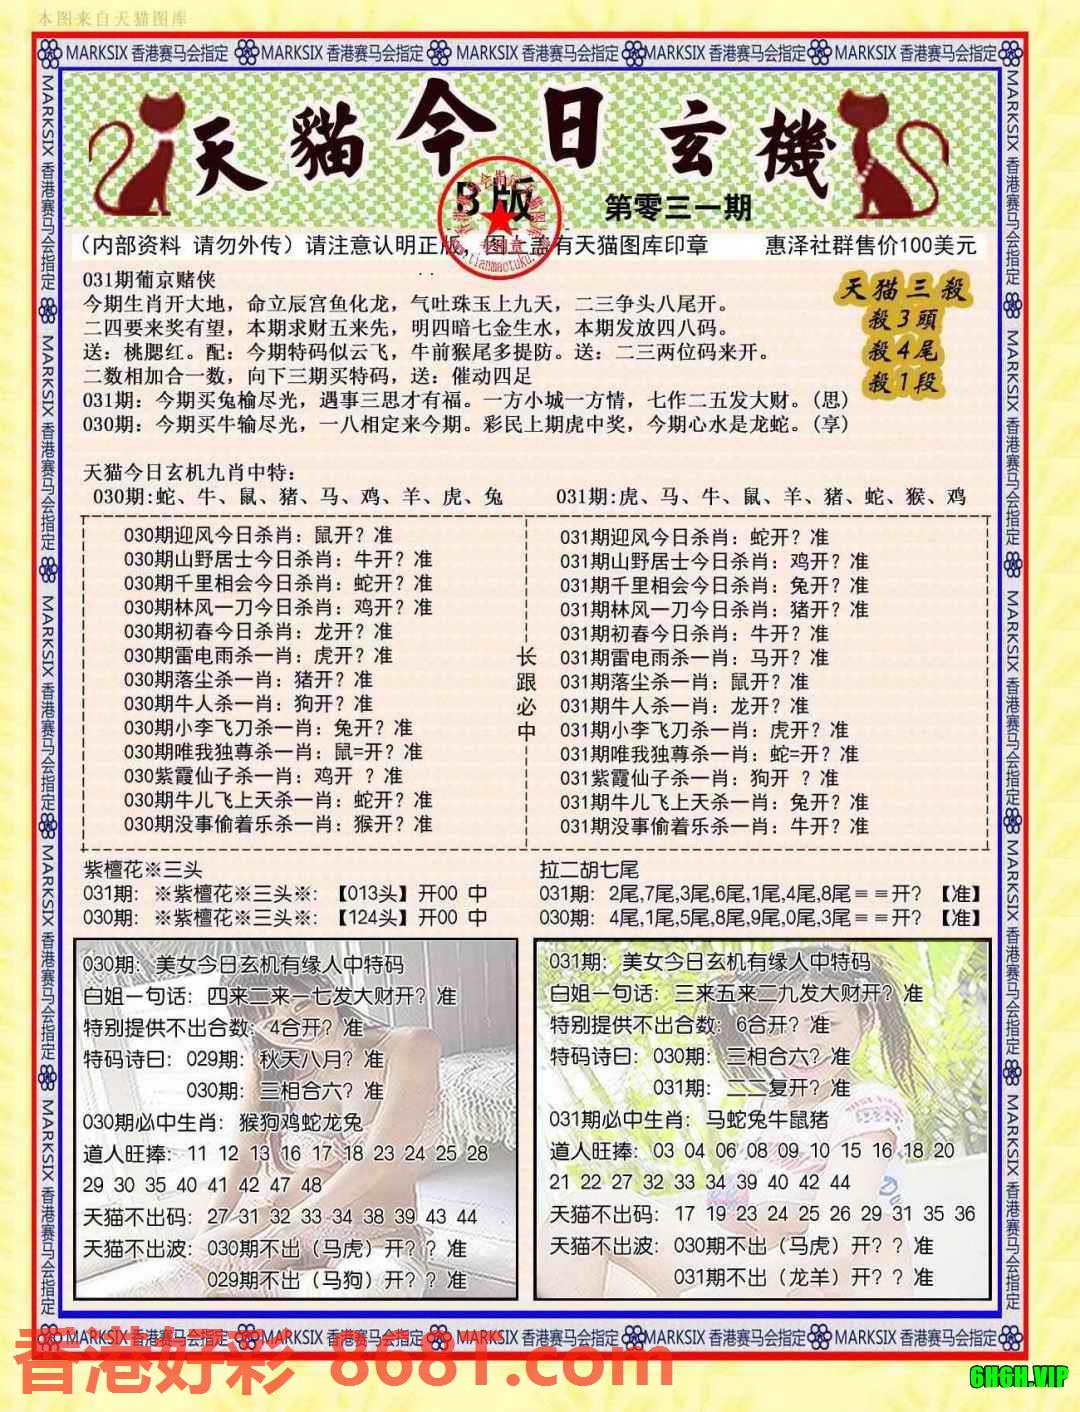 本图来自天猫图库
MARKSIX 香港赛马会指定 MARKSIX 香港赛马会指定 MARKSIX 香港赛马会指定 MARKSIX 香港赛马会指定 MARKSIX 香港赛马会指定
天貓今日玄機
B版
第零三一期
(内部资料 请勿外传) 请注意认明正版,图上盖有天猫图库印章 惠泽社群售价100美元
031期葡京赌侠
今期生肖开大地,命立辰宫鱼化龙,气吐珠玉上九天,二三争头八尾开。
二四要来奖有望,本期求财五来先,明四暗七金生水,本期发放四八码。
送:桃腮红。配:今期特码似云飞,牛前猴尾多提防。送:二三两位码来开。
二数相加合一数,向下三期买特码,送:催动四足
031期:今期买兔榆尽光,遇事三思才有福。一方小城一方情,七作二五发大财。(思)
030期:今期买牛输尽光,一八相定来今期。彩民上期虎中奖,今期心水是龙蛇。(享)
天猫三殺
殺3頭
殺4尾
殺1段
天猫今日玄机九肖中特:
030期:蛇、牛、鼠、猪、马、鸡、羊、虎、兔 031期:虎、马、牛、鼠、羊、猪、蛇、猴、鸡
030期迎风今日杀肖:鼠开?准
030期山野居士今日杀肖:牛开?准
030期千里相会今日杀肖:蛇开?准
030期林风一刀今日杀肖:鸡开?准
030期初春今日杀肖:龙开?准
030期雷电雨杀一肖:虎开?准
030期落尘杀一肖:猪开?准
030期牛人杀一肖:狗开?准
030期小李飞刀杀一肖:兔开?准
030期唯我独尊杀一肖:鼠=开?准
030紫霞仙子杀一肖:鸡开 ?准
030期牛儿飞上天杀一肖:蛇开?准
030期没事偷着乐杀一肖:猴开?准
长跟必中
031期迎风今日杀肖:蛇开?准
031期山野居士今日杀肖:鸡开?准
031期千里相会今日杀肖:兔开?准
031期林风一刀今日杀肖:猪开?准
031期初春今日杀肖:牛开?准
031期雷电雨杀一肖:马开?准
031期落尘杀一肖:鼠开?准
031期牛人杀一肖:龙开?准
031期小李飞刀杀一肖:虎开?准
031期唯我独尊杀一肖:蛇=开?准
031紫霞仙子杀一肖:狗开 ?准
031期牛儿飞上天杀一肖:兔开?准
031期没事偷着乐杀一肖:牛开?准
紫檀花※三头
031期: ※紫檀花※三头※:【013头】开00 中
030期: ※紫檀花※三头※:【124头】开00 中
拉二胡七尾
031期: 2尾,7尾,3尾,6尾,1尾,4尾,8尾==开? 【准】
030期: 4尾,1尾,5尾,8尾,9尾,0尾,3尾==开? 【准】
030期:美女今日玄机有缘人中特码
白姐一句话:四来二来一七发大财开?准
特别提供不出合数:4合开?准
特码诗曰:029期:秋天八月?准
030期:三相合六?准
030期必中生肖:猴狗鸡蛇龙兔
道人旺捧:11 12 13 16 17 18 23 24 25 28
29 30 35 40 41 42 47 48
天猫不出码:27 31 32 33 34 38 39 43 44
天猫不出波:030期不出(马虎)开??准
029期不出(马狗)开??准
031期:美女今日玄机有缘人中特码
白姐一句话:三来五来二九发大财开?准
特别提供不出合数:6合开?准
特码诗曰:030期:三相合六?准
031期:二二复开?准
031期必中生肖:马蛇兔牛鼠猪
道人旺捧:03 04 06 08 09 10 15 16 18 20
21 22 27 32 33 34 39 40 42 44
天猫不出码:17 19 23 24 25 26 29 31 35 36
天猫不出波:030期不出(马虎)开??准
031期不出(龙羊)开??准
MARKSIX 香港赛马会指定 MARKSIX 香港赛马会指定 MARKSIX 香港赛马会指定 MARKSIX 香港赛马会指定 MARKSIX 香港赛马会指定
香港好彩 8681.com
6HGH.VIP